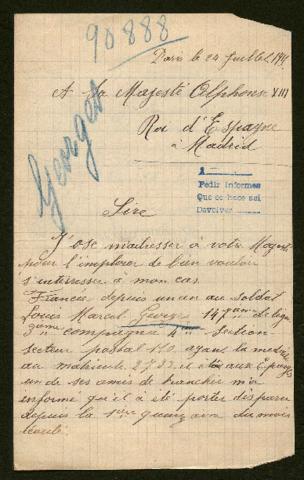 90888
Paris le 24 Juillet 191
A Sa Majesté Alphonse XIII
Roi d'Espagne
à Madrid
Georges
1
Pedir informes
Que ce hace asi
Devolver
Sire
J'ose m'adresser à votre Majesté
pour l'implorer de bien vouloir
s'interresser à mon cas.
Fiancée depuis un an au soldat
Louis Marcel Georges 147 de ligne
3 compagnie 4 section
secteur postal ayant la medaille
au matricule et aux Eparges
un de ses amis de tranchée m'a
informé qu'il a été porté disparu
depuis la 1ère quinzaine du mois
écoulé.